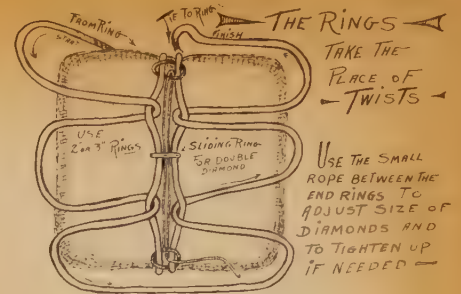 FROM RING
START
TIE TO RING
FINISH
THE RINGS
TAKE THE
PLACE OF
TWISTS
USE
2" OR 3" RINGS
SLIDING RING
FOR DOUBLE
DIAMOND
USE THE SMALL
ROPE BETWEEN THE
END RINGS TO
ADJUST SIZE OF
DIAMONDS AND
TO TIGHTEN UP
IF NEEDED